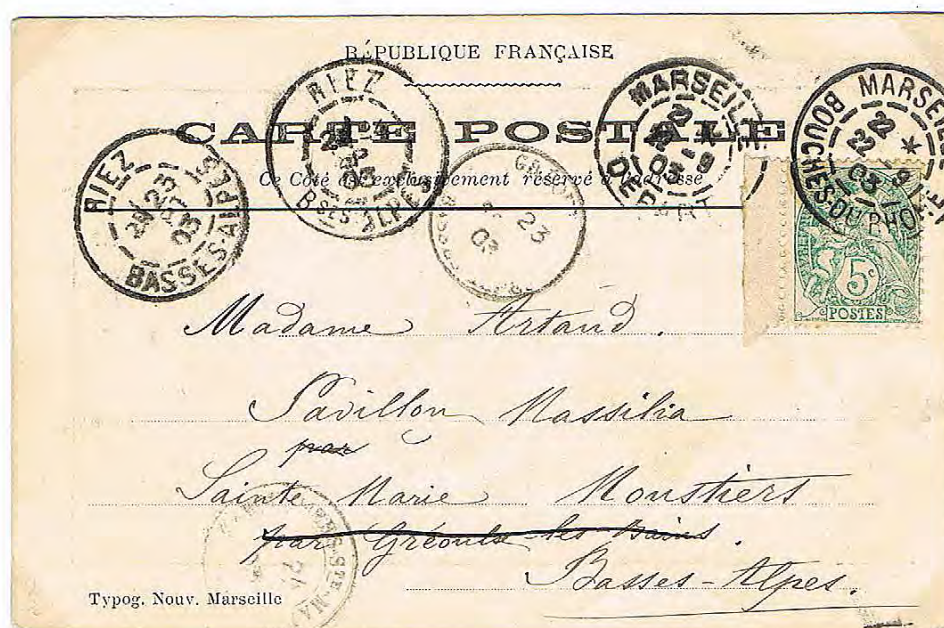 RÉPUBLIQUE FRANÇAISE
CARTE POSTALE
Ce Côté est exclusivement réservé à l'adresse
RIEZ
25
03
BASSES-ALPES
RIEZ
Bses ALPES
MARSEILLE
DEPART
03
GR
23
03
MARSEILLE
22
03
BOUCHES-DU-RHO
5c
POSTES
Madame Artaud.
Pavillon Massilia
par à
Sainte Marie Moustiers
par Gréoulx les Bains.
Basses-Alpes.
STE-MA
Typog. Nouv. Marseille